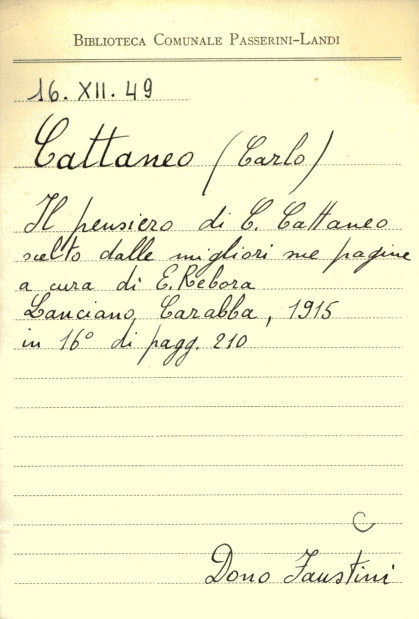 BIBLIOTECA COMUNALE PASSERINI-LANDI
16. XII. 49
Cattaneo (Carlo)
Il pensiero di C. Cattaneo
scelto dalle migliori sue pagine
a cura di E. Rebora
Lanciano, Carabba, 1915
in 16° di pagg. 210
C
Dono Faustini